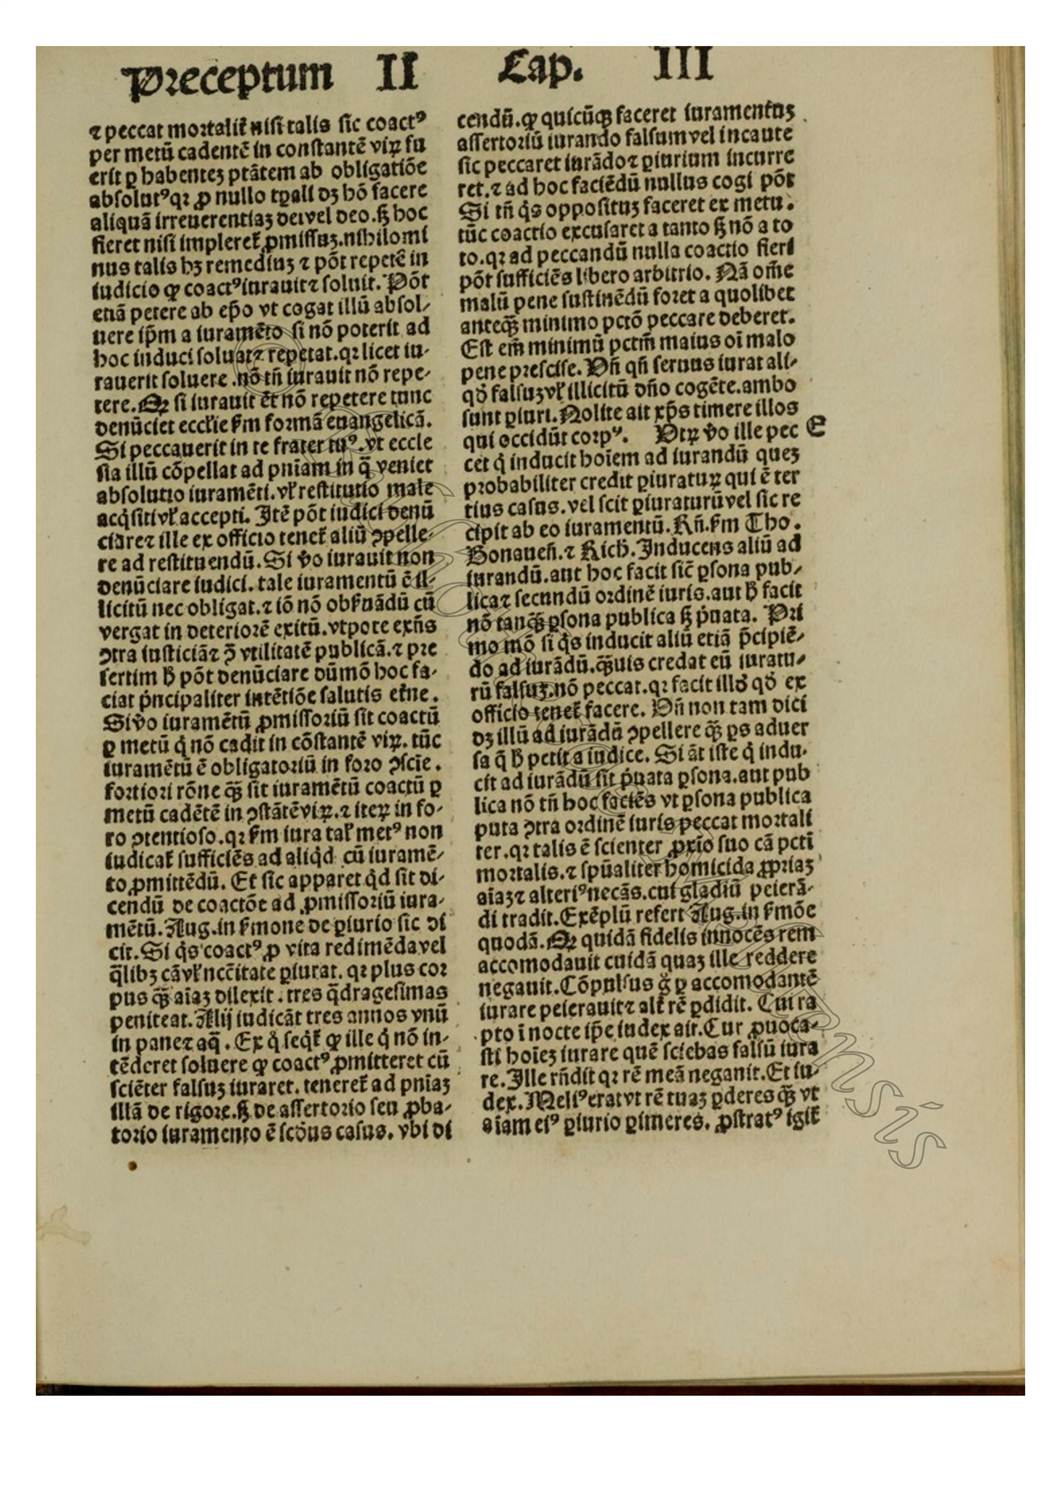 Preceptum II Cap. III
⁊ peccat mortalit̄ nisi talis sic coactꝰ
per metū cadentē in constantē viꝝ fu
erit ꝑ habentez ptātem ab obligatiōe
absolutꝰ qꝛ ꝓ nullo tꝑali dz hō facere
aliquā irreuerentiaz dei vel deo. sꝫ hoc
fieret nisi impleret̄ ꝓmissuz. nihilomi
nus talis hz remediuz ⁊ pōt repetē in
iudicio ꝙ coactꝰ iurauit ⁊ soluit. Pōt
etiā petere ab epō vt cogat illū absol⸗
uere ip̄m a iuramēto si nō poterit ad
hoc induci soluat ⁊ repetat. qꝛ licet iu⸗
rauerit soluere. nō tn̄ iurauit nō repe⸗
tere. Qꝛ si iurauit et̄ nō repetere tunc
denūciet eccl'ie s̄m formā euangelicā.
Si peccauerit in te frater tuꝰ. vt eccle
sia illū cōpellat ad pniam in q̄ veniet
absolutio iuramēti. vl' restitutio male
acq̇siti vl' accepti. Itē pōt iudici denū
ciare ⁊ ille ex officio tenet̄ aliū ꝯpelle⸗
re ad restituendū. Si v̄o iurauit non
denūciare iudici. tale iuramentū ē il⸗
licitū nec obligat. ⁊ iō nō obs̄uādū cū
vergat in deteriorē exitū. vtpote exn̄s
ꝯtra iusticiā ⁊ ꝯ̄ vtilitatē publicā. ⁊ pre
sertim h̄ pōt denūciare dūmō hoc fa⸗
ciat p̄ncipaliter intētiōe salutis et̄ne.
Si v̄o iuramētū ꝓmissoriū sit coactū
ꝑ metū q̇ nō cadit in cōstantē viꝝ. tūc
iuramētū ē obligatoriū in foro ꝯscīe.
fortiori rōne qꝫ̄ sit iuramētū coactū ꝑ
metū cadētē in ꝯstātē viꝝ. ⁊ iteꝝ in fo⸗
ro ꝯtentioso. qꝛ s̄m iura tal' metꝰ non
iudicat̄ sufficiēs ad aliq̇d cū iuramē⸗
to ꝓmittēdū. Et sic apparet q̇d sit di⸗
cendū de coactōe ad ꝓmissoriū iura⸗
mētū. Aug. in s̄mone de ꝑiurio sic di
cit. Si q̇s coactꝰ ꝓ vita redimēda vel
q̄libz cā vl' nccītate ꝑiurat. qꝛ plus cor
pus qꝫ̄ aīaz dilexit. tres q̄dragesimas
peniteat. Alij iudicāt tres annos vnū
in pane ⁊ aq̄. Ex q̇ seq̇t̄ ꝙ ille q̇ nō in⸗
tēderet soluere ꝙ coactꝰ ꝓmitteret cū
sciēter falsuz iuraret. teneret̄ ad pniaz
illā de rigore. sꝫ de assertorio seu ꝓba⸗
torio iuramento ē scōus casus. vbi di
cendū. ꝙ quicūqꝫ faceret iuramentuz
assertoriū iurando falsum vel incaute
sic peccaret iurādo ⁊ ꝑiurium incurre
ret. ⁊ ad hoc faciēdū nullus cogi pōt
Si tn̄ q̇s opposituz faceret ex metu.
tūc coactio excusaret a tanto sꝫ nō a to
to. qꝛ ad peccandū nulla coactio fieri
pōt sufficiēs libero arbitrio. Nā om̄e
malū pene sustinēdū foret a quolibet
anteqꝫ̄ minimo pctō peccare deberet.
Est em̄ minimū pctm̄ maius oī malo
pene prescise. Vn̄ qn̄ seruus iurat ali⸗
qd' falsuz vl' illicitū dn̄o cogēte. ambo
sunt ꝑiuri. Nolite ait xp̄s timere illos
qui occidūt corpꝰ. Utꝝ v̄o ille pec E
cet q̇ inducit hoīem ad iurandū quez
probabiliter credit ꝑiuratuꝝ qui ē ter
tius casus. vel scit ꝑiuraturū vel sic re
cipit ab eo iuramentū. Rn̄. s̄m Tho.
Bonauen̄. ⁊ Rich̄. Inducens aliū ad
iurandū. aut hoc facit sīc ꝑsona pub⸗
lica ⁊ secundū ordinē iuris. aut h̄ facit
nō tanqꝫ̄ ꝑsona publica sꝫ p̄uata. Pri
mo mō si q̇s inducit aliū etiā p̄cipiē⸗
do ad iurādū. qꝫ̄uis credat eū iuratu⸗
rū falsuz. nō peccat. qꝛ facit illd' qd' ex
officio tenet̄ facere. Vn̄ non tam dici
dz illū ad iurādū ꝯpellere qꝫ̄ ꝑs aduer
sa q̄ h̄ petit a iudice. Si āt iste q̇ indu⸗
cit ad iurādū sit p̄uata ꝑsona. aut pub
lica nō tn̄ hoc faciēs vt ꝑsona publica
puta ꝯtra ordinē iuris peccat mortali
ter. qꝛ talis ē scienter ꝓxīo suo cā pcti
mortalis. ⁊ spūaliter homicida ꝓpriaz
aīaz ⁊ alteriꝰ necās. cui gladiū peierā⸗
di tradit. Exēplū refert Aug. in s̄mōe
quodā. Qꝛ quidā fidelis innocēs rem
accomodauit cuidā quaz ille reddere
negauit. Cōpulsus g̊ ꝑ accomodantē
iurare peierauit ⁊ alt̄ rē ꝑdidit. Cui ra
pto ī nocte ip̄e iudex ait. Cur ꝓuoca⸗
sti hoīez iurare quē sciebas falsū iura
re. Ille rn̄dit qꝛ rē meā negauit. Et iu⸗
dex. Meliꝰ erat vt rē tuaz ꝑderes qꝫ̄ vt
aīam eiꝰ ꝑiurio ꝑimeres. ꝓstratꝰ igit̄